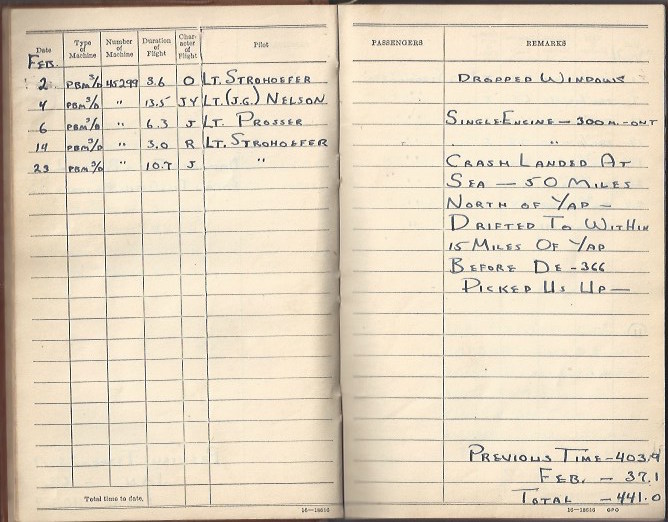 Date Type of Machine Number of Machine Duration of Flight Character of Flight Pilot PASSENGERS REMARKS
FEB.
2 PBM 3/D 45299 3.6 O LT. STROHOEFER DROPPED WINDOWS
4 PBM 3/D " 13.5 JY LT. (J.G.) NELSON
6 PBM 3/D " 6.3 J LT. PROSSER SINGLE ENGINE — 300 M. - OUT
14 PBM 3/D " 3.0 R LT. STROHOEFER "
23 PBM 3/D " 10.7 J " CRASH LANDED AT
SEA — 50 MILES
NORTH OF YAP —
DRIFTED TO WITHIN
15 MILES OF YAP
BEFORE DE - 366
PICKED US UP —
PREVIOUS TIME - 403.9
FEB. - 37.1
Total time to date, TOTAL - 441.0
16—18610 16—18610 GPO